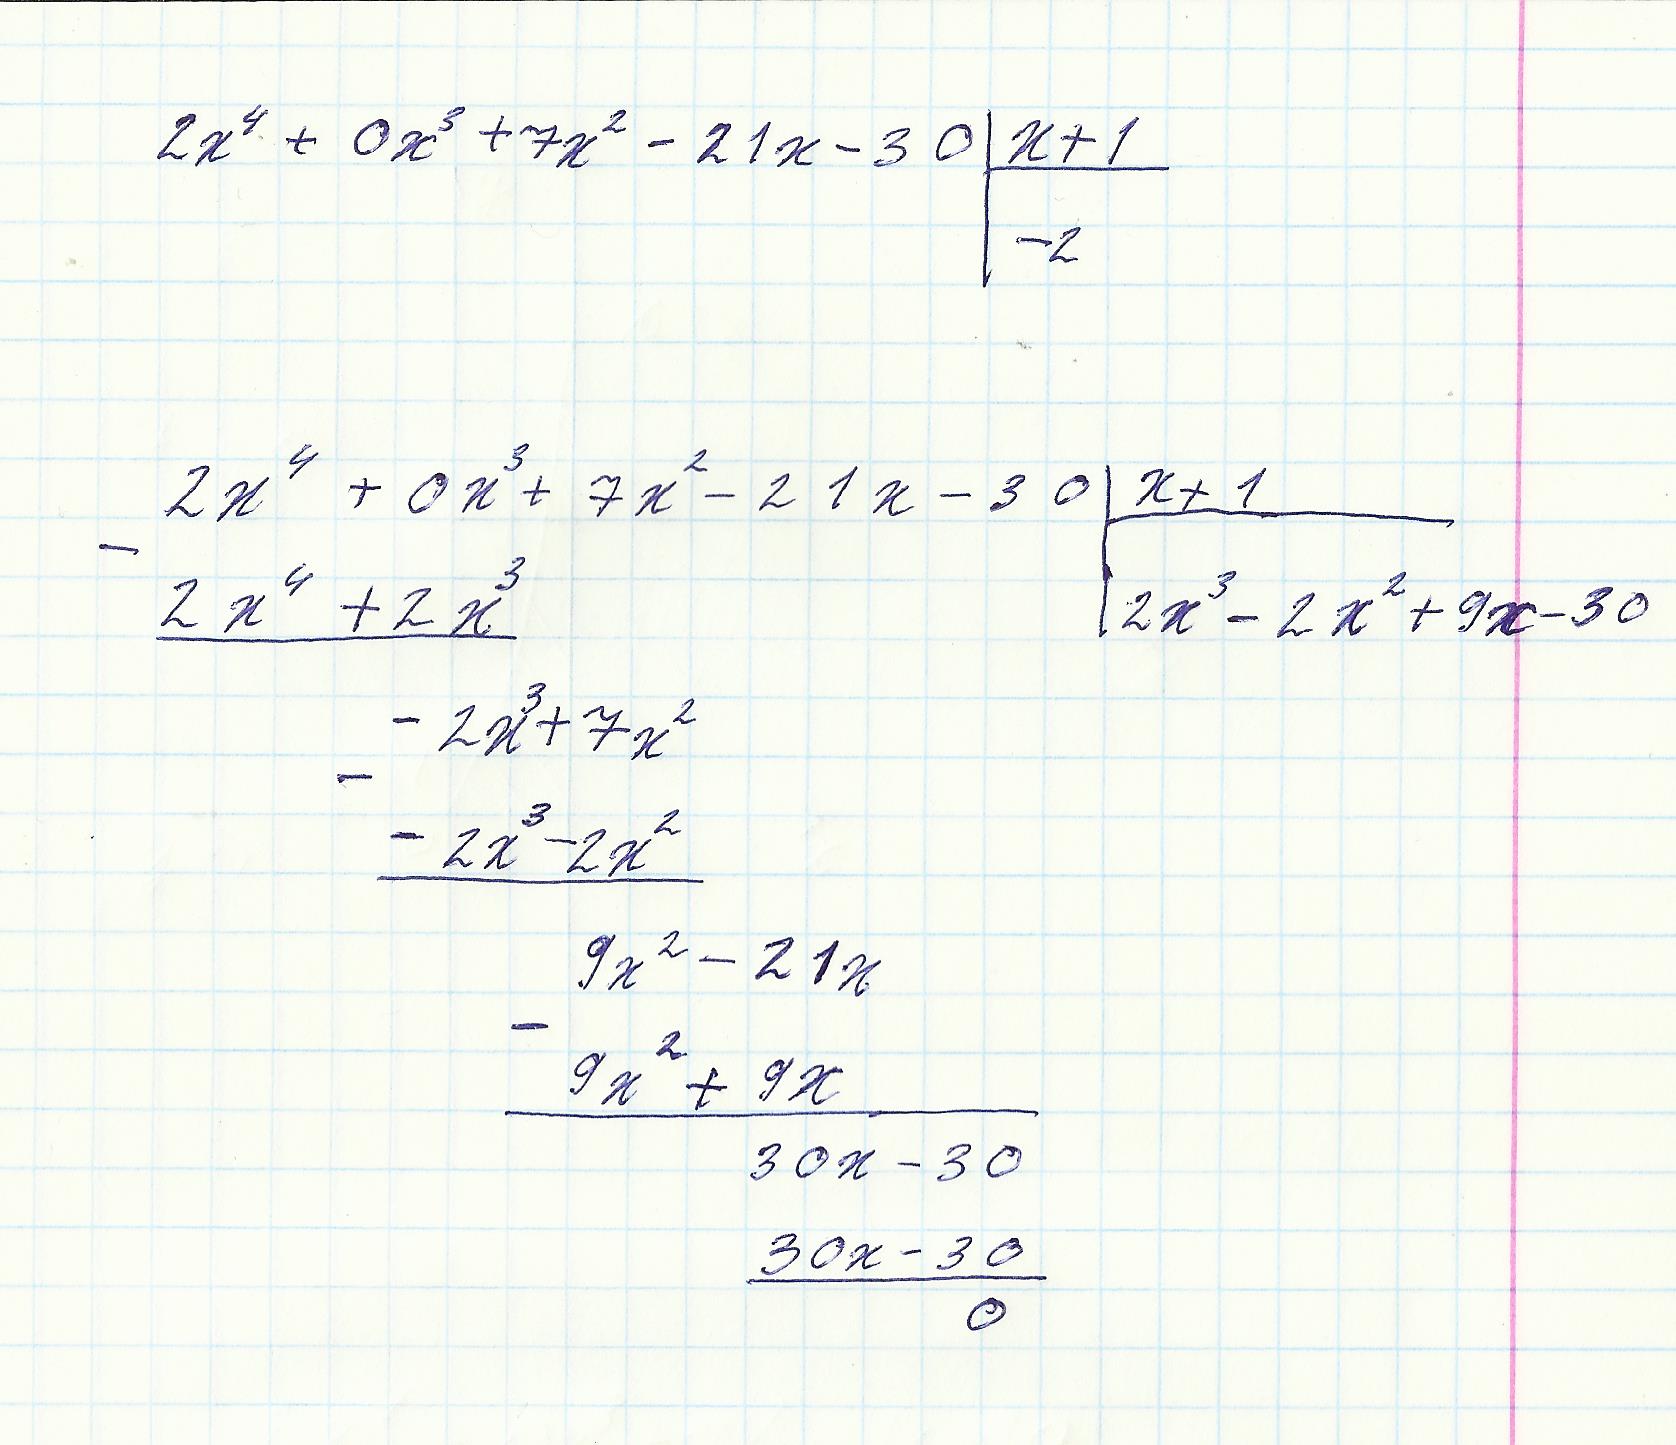 2x⁴ + 0x³ + 7x² - 21x - 30 | x + 1
-2
2x⁴ + 0x³ + 7x² - 21x - 30 | x + 1
-
2x⁴ + 2x³ | 2x³ - 2x² + 9x - 30
- 2x³ + 7x²
-
- 2x³ - 2x²
9x² - 21x
-
9x² + 9x
30x - 30
30x - 30
0